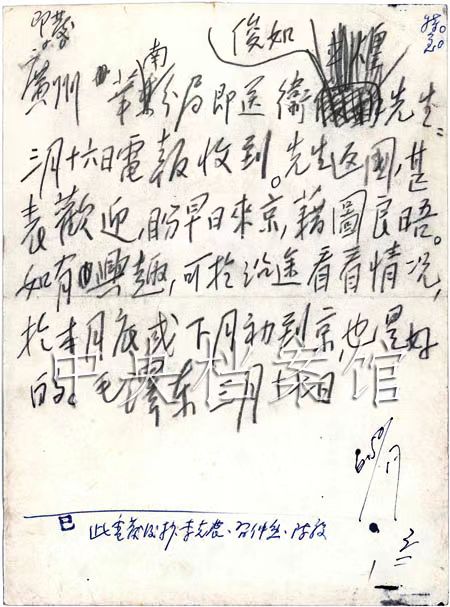 即發
特急
俊如
廣州 華南分局即送衛 先生:
三月十六日電報收到。先生返國,甚
表歡迎,盼早日來京,藉圖良晤。
如有興趣,可於沿途看看情況,
於本月底或下月初到京,也是好
的。毛澤東 三月十七日
中央档案馆
已
此電發後抄李克農、